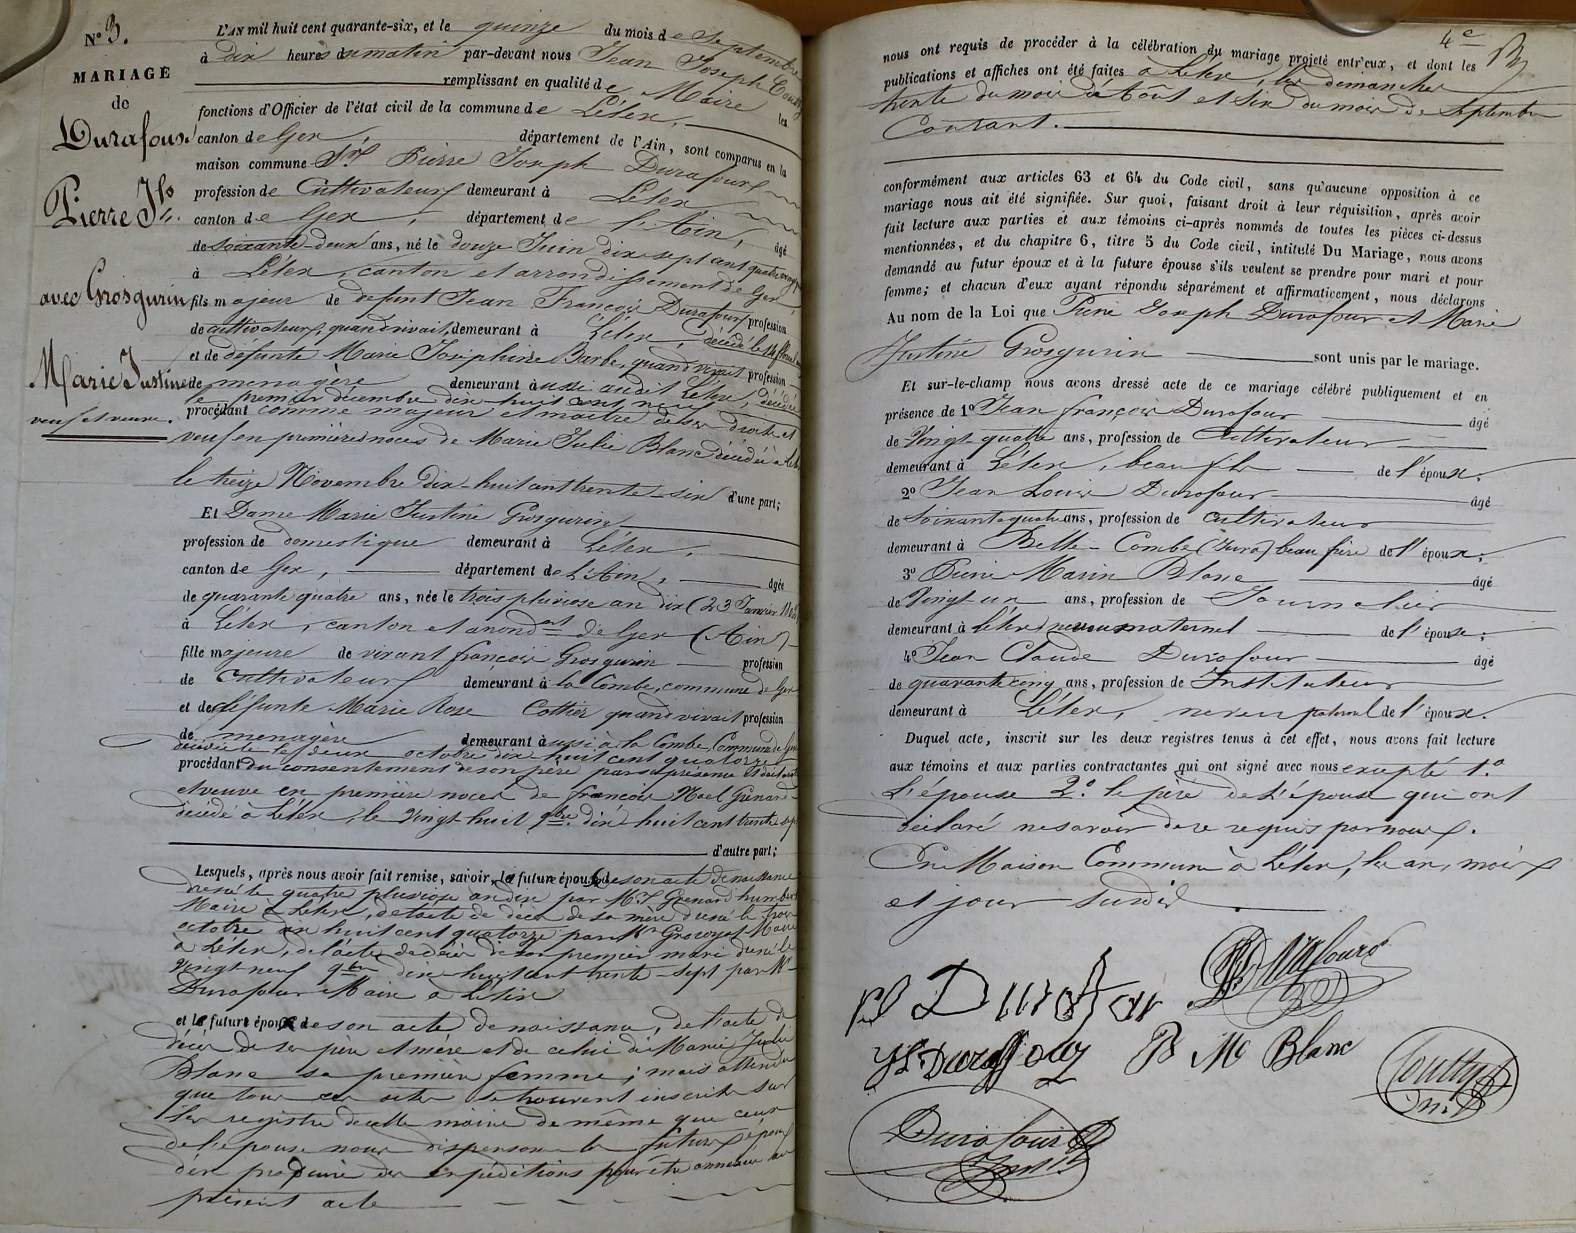 N° 3.
MARIAGE
de
Durafour
Pierre Jh.
avec Grosgurin
Marie Justine
veuf et veuve.
L'AN mil huit cent quarante-six, et le quinze du mois de Septembre
à dix heures du matin par-devant nous Jean Joseph Coutty
remplissant en qualité de Maire les
fonctions d'Officier de l'état civil de la commune de Lélex,
canton de Gex, département de l'Ain, sont comparus en la
maison commune Sr Pierre Joseph Durafour
profession de Cultivateur demeurant à Lélex
canton de Gex, département de l'Ain, âgé
de soixante deux ans, né le douze Juin dix sept cent quatre vingt
à Lélex, canton et arrondissement de Gex,
fils majeur de defunt Jean François Durafour profession
de cultivateur, quand vivait, demeurant à Lélex, décédé le
et de defunte Marie Josephine Barbe, quand vivait profession
de menagère demeurant à aussi audit Lélex, décédée
le premier décembre dix huit cent neuf
procédant comme majeur et maitre de ses droits et
veuf en premières noces de Marie Julie Blanc décédée à Lélex
le treize Novembre dix-huit cent trente six d'une part;
Et Dame Marie Justine Grosgurin
profession de domestique demeurant à Lélex,
canton de Gex, département de l'Ain, âgée
de quarante quatre ans, née le trois pluviose an dix (23 Janvier 1802)
à Lélex, canton et arrondt de Gex (Ain)
fille majeure de vivant françois Grosgurin profession
de Cultivateur demeurant à la Combe, commune de Gex
et de défunte Marie Rose Cottier quand vivait profession
de menagère demeurant à aussi à la Combe, Commune de Gex
décédée le deux octobre dix huit cent quatorze
procédant du consentement de son père par sa présence
et veuve en première noces de françois Noel Grenard
décédé à Lélex, le vingt huit 9bre dix huit cent trente sept
d'autre part;
Lesquels, après nous avoir fait remise, savoir, la future épouse de son acte de naissance
dressé le quatre pluviose an dix par Mr Grenard humbert
Maire à Lélex, de l'acte de décès de sa mère dressé le trois
octobre dix huit cent quatorze par Mr Maire
à Lélex, de l'acte de décès de son premier mari dressé le
vingt neuf 9bre dix huit cent trente-sept par Mr
Durafour Maire à Lélex
et le futur époux de son acte de naissance, de l'acte de
décès de ses père et mère et de celui de Marie Julie
Blanc sa première femme; mais attendu
que tous ces actes se trouvent inscrits sur
les registres de cette mairie de même que ceux
de l'épouse nous dispensons les futurs époux
d'en produire des expéditions pour être annexées au
présent acte
4e
nous ont requis de procéder à la célébration du mariage projeté entr'eux, et dont les
publications et affiches ont été faites à Lélex, les dimanches
trente du mois d'Août et six du mois de Septembre
Courant.
conformément aux articles 63 et 64 du Code civil, sans qu'aucune opposition à ce
mariage nous ait été signifiée. Sur quoi, faisant droit à leur réquisition, après avoir
fait lecture aux parties et aux témoins ci-après nommés de toutes les pièces ci-dessus
mentionnées, et du chapitre 6, titre 5 du Code civil, intitulé Du Mariage, nous avons
demandé au futur époux et à la future épouse s'ils veulent se prendre pour mari et pour
femme; et chacun d'eux ayant répondu séparément et affirmativement, nous déclarons
Au nom de la Loi que Pierre Joseph Durafour et Marie
Justine Grosgurin sont unis par le mariage.
Et sur-le-champ nous avons dressé acte de ce mariage célébré publiquement et en
présence de 1° Jean françois Durafour âgé
de Vingt-quatre ans, profession de Cultivateur
demeurant à Lélex, beau fils de l'époux.
2° Jean Louis Durafour âgé
de Soixante quatre ans, profession de Cultivateur
demeurant à Belle-Combe (Jura) beau frère de l'époux;
3° Pierre Marin Blanc âgé
de Vingt un ans, profession de Journalier
demeurant à Lélex neveu maternel de l'époux;
4° Jean Claude Durafour âgé
de quarante cinq ans, profession de Instituteur
demeurant à Lélex, neveu paternel de l'époux.
Duquel acte, inscrit sur les deux registres tenus à cet effet, nous avons fait lecture
aux témoins et aux parties contractantes qui ont signé avec nous excepté 1.°
L'épouse 2.° le père de l'épouse qui ont
déclaré ne savoir de ce requis par nous.
En Maison Commune à Lélex, les an, mois
et jour susdit.
PJ Durafour
JL Durafour P Mc Blanc
Coutty
Durafour